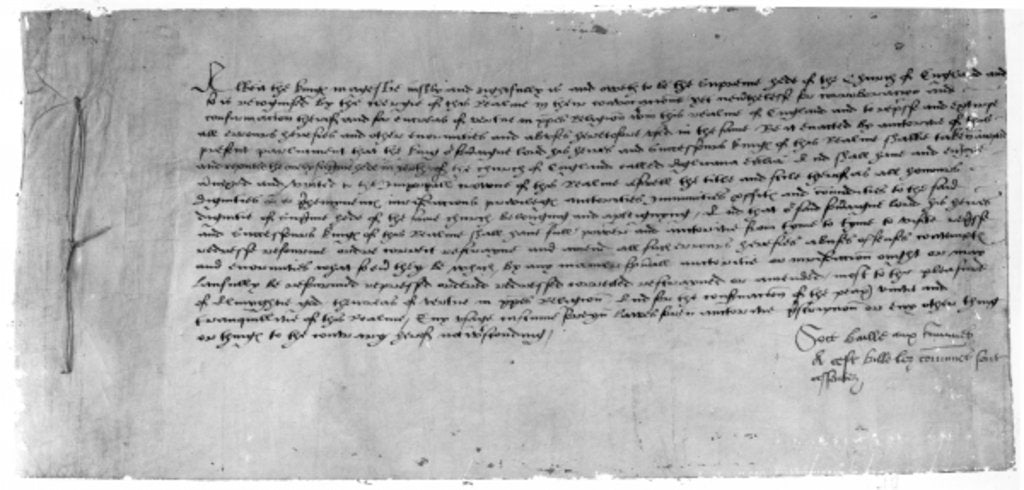 Albeit the kinges magestie iustly and rightfully is and oweth to be the supreme hede of the Churche of England and
so is recognised by the clergie of this Realme in their convocations yet neuertheles for corroboracion and
confirmacion therof and for encreas of vertue in xpes Religion within this realme of England and to represse and extirpe
all errours heresies and other enormities and abuses heretofore used in the same Be it enacted by auctorite of this
present parliament that the king our soveraigne lord his heires and successours kinges of this Realme shalbe taken accepted
and reputed the only supreme hede in erth of the church of England called Anglicana Ecclesia And shall haue and enioye
annexed and united to the Imperyall crowne of this Realme aswell the title and stile therof as all honours
dignities preheminences iurisdictions privileges auctorities immunities profitis and commodities to the said
dignitie of supreme hede of the same church belonging and apperteynyng And that our said soveraigne lord his heires
and successours kinges of this Realme shall haue full power and auctorite from tyme to tyme to visite represse
redresse reforme ordre correct restrayne and amend all such errours heresies abuses offenses contemptes
and enormities what so ever they be which by any maner spirituall auctorite or iurisdiction ought or may
laufully be reformed repressed ordered redressed corrected restrayned or amended most to the pleasure
of Almyghtie god thencreas of vertue in xpes Religion And for the conservacion of the peax unite and
tranquilitie of this Realme Any usage custome foreyn lawes foreyn auctorite prescripcion or eny other thing
or thinges to the contrary herof notwithstonding
Soit baille aux communes
A cest bille les communes sont
assentez